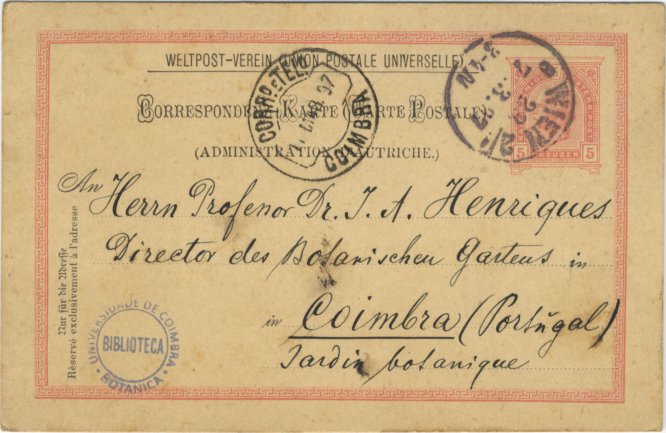 WELTPOST-VEREIN (UNION POSTALE UNIVERSELLE)
Correspondenz-Karte (Carte Postale)
(ADMINISTRATION D'AUTRICHE.)
CORRO E TEL
COIMBRA
WIEN 2/1
3-4N
5 KREUZER 5
An
Herrn Professor Dr. J. A. Henriques
Director des Botanischen Gartens in
in Coimbra (Portugal)
Jardin botanique
Nur für die Adresse
Réservé exclusivement à l'adresse
UNIVERSIDADE DE COIMBRA
BIBLIOTECA
BOTANICA